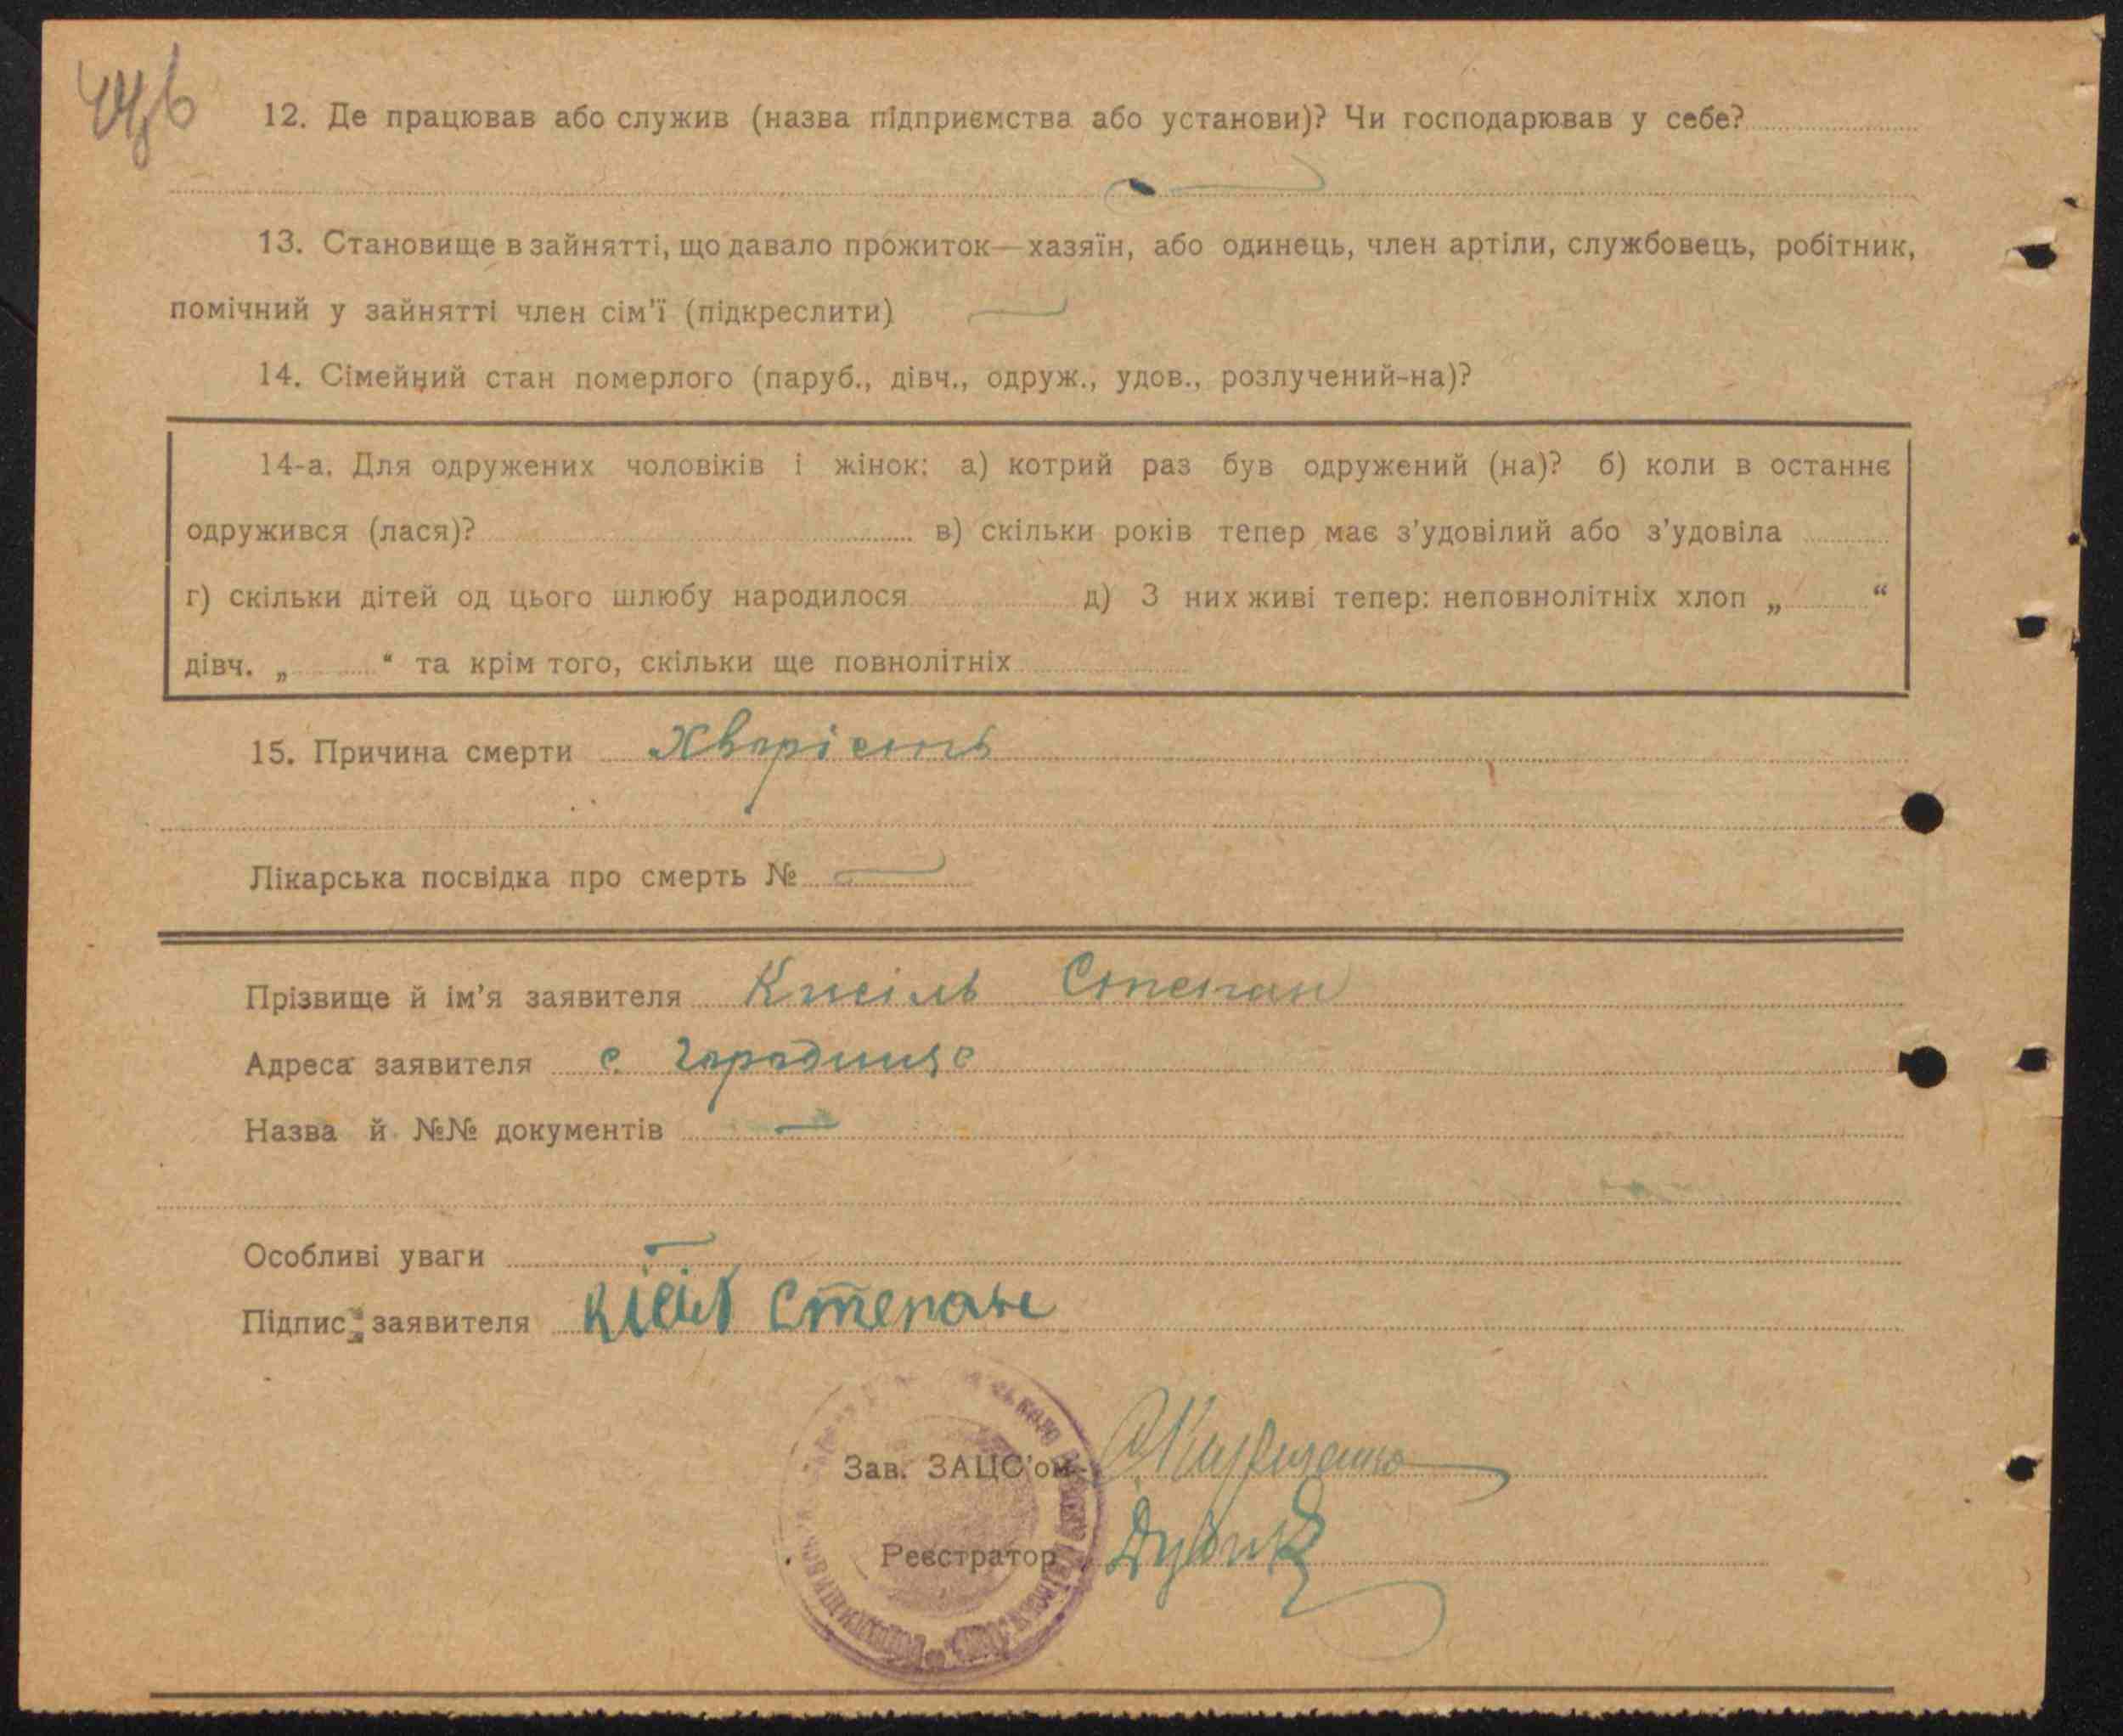 12. Де працював або служив (назва підприємства або установи)? Чи господарював у себе?
13. Становище в зайнятті, що давало прожиток—хазяїн, або одинець, член артіли, службовець, робітник,
помічний у зайнятті член сім'ї (підкреслити)
14. Сімейний стан померлого (паруб., дівч., одруж., удов., розлучений-на)?
14-а. Для одружених чоловіків і жінок: а) котрий раз був одружений (на)? б) коли в останнє
одружився (лася)? в) скільки років тепер має з'удовілий або з'удовіла
г) скільки дітей од цього шлюбу народилося д) З них живі тепер: неповнолітніх хлоп „ “
дівч. „ “ та крім того, скільки ще повнолітніх
15. Причина смерти Хворість
Лікарська посвідка про смерть №
Прізвище й ім'я заявителя Кисіль Степан
Адреса заявителя с.
Назва й №№ документів —
Особливі уваги —
Підпис заявителя Степан
Зав. ЗАЦС'ом
Реєстратор